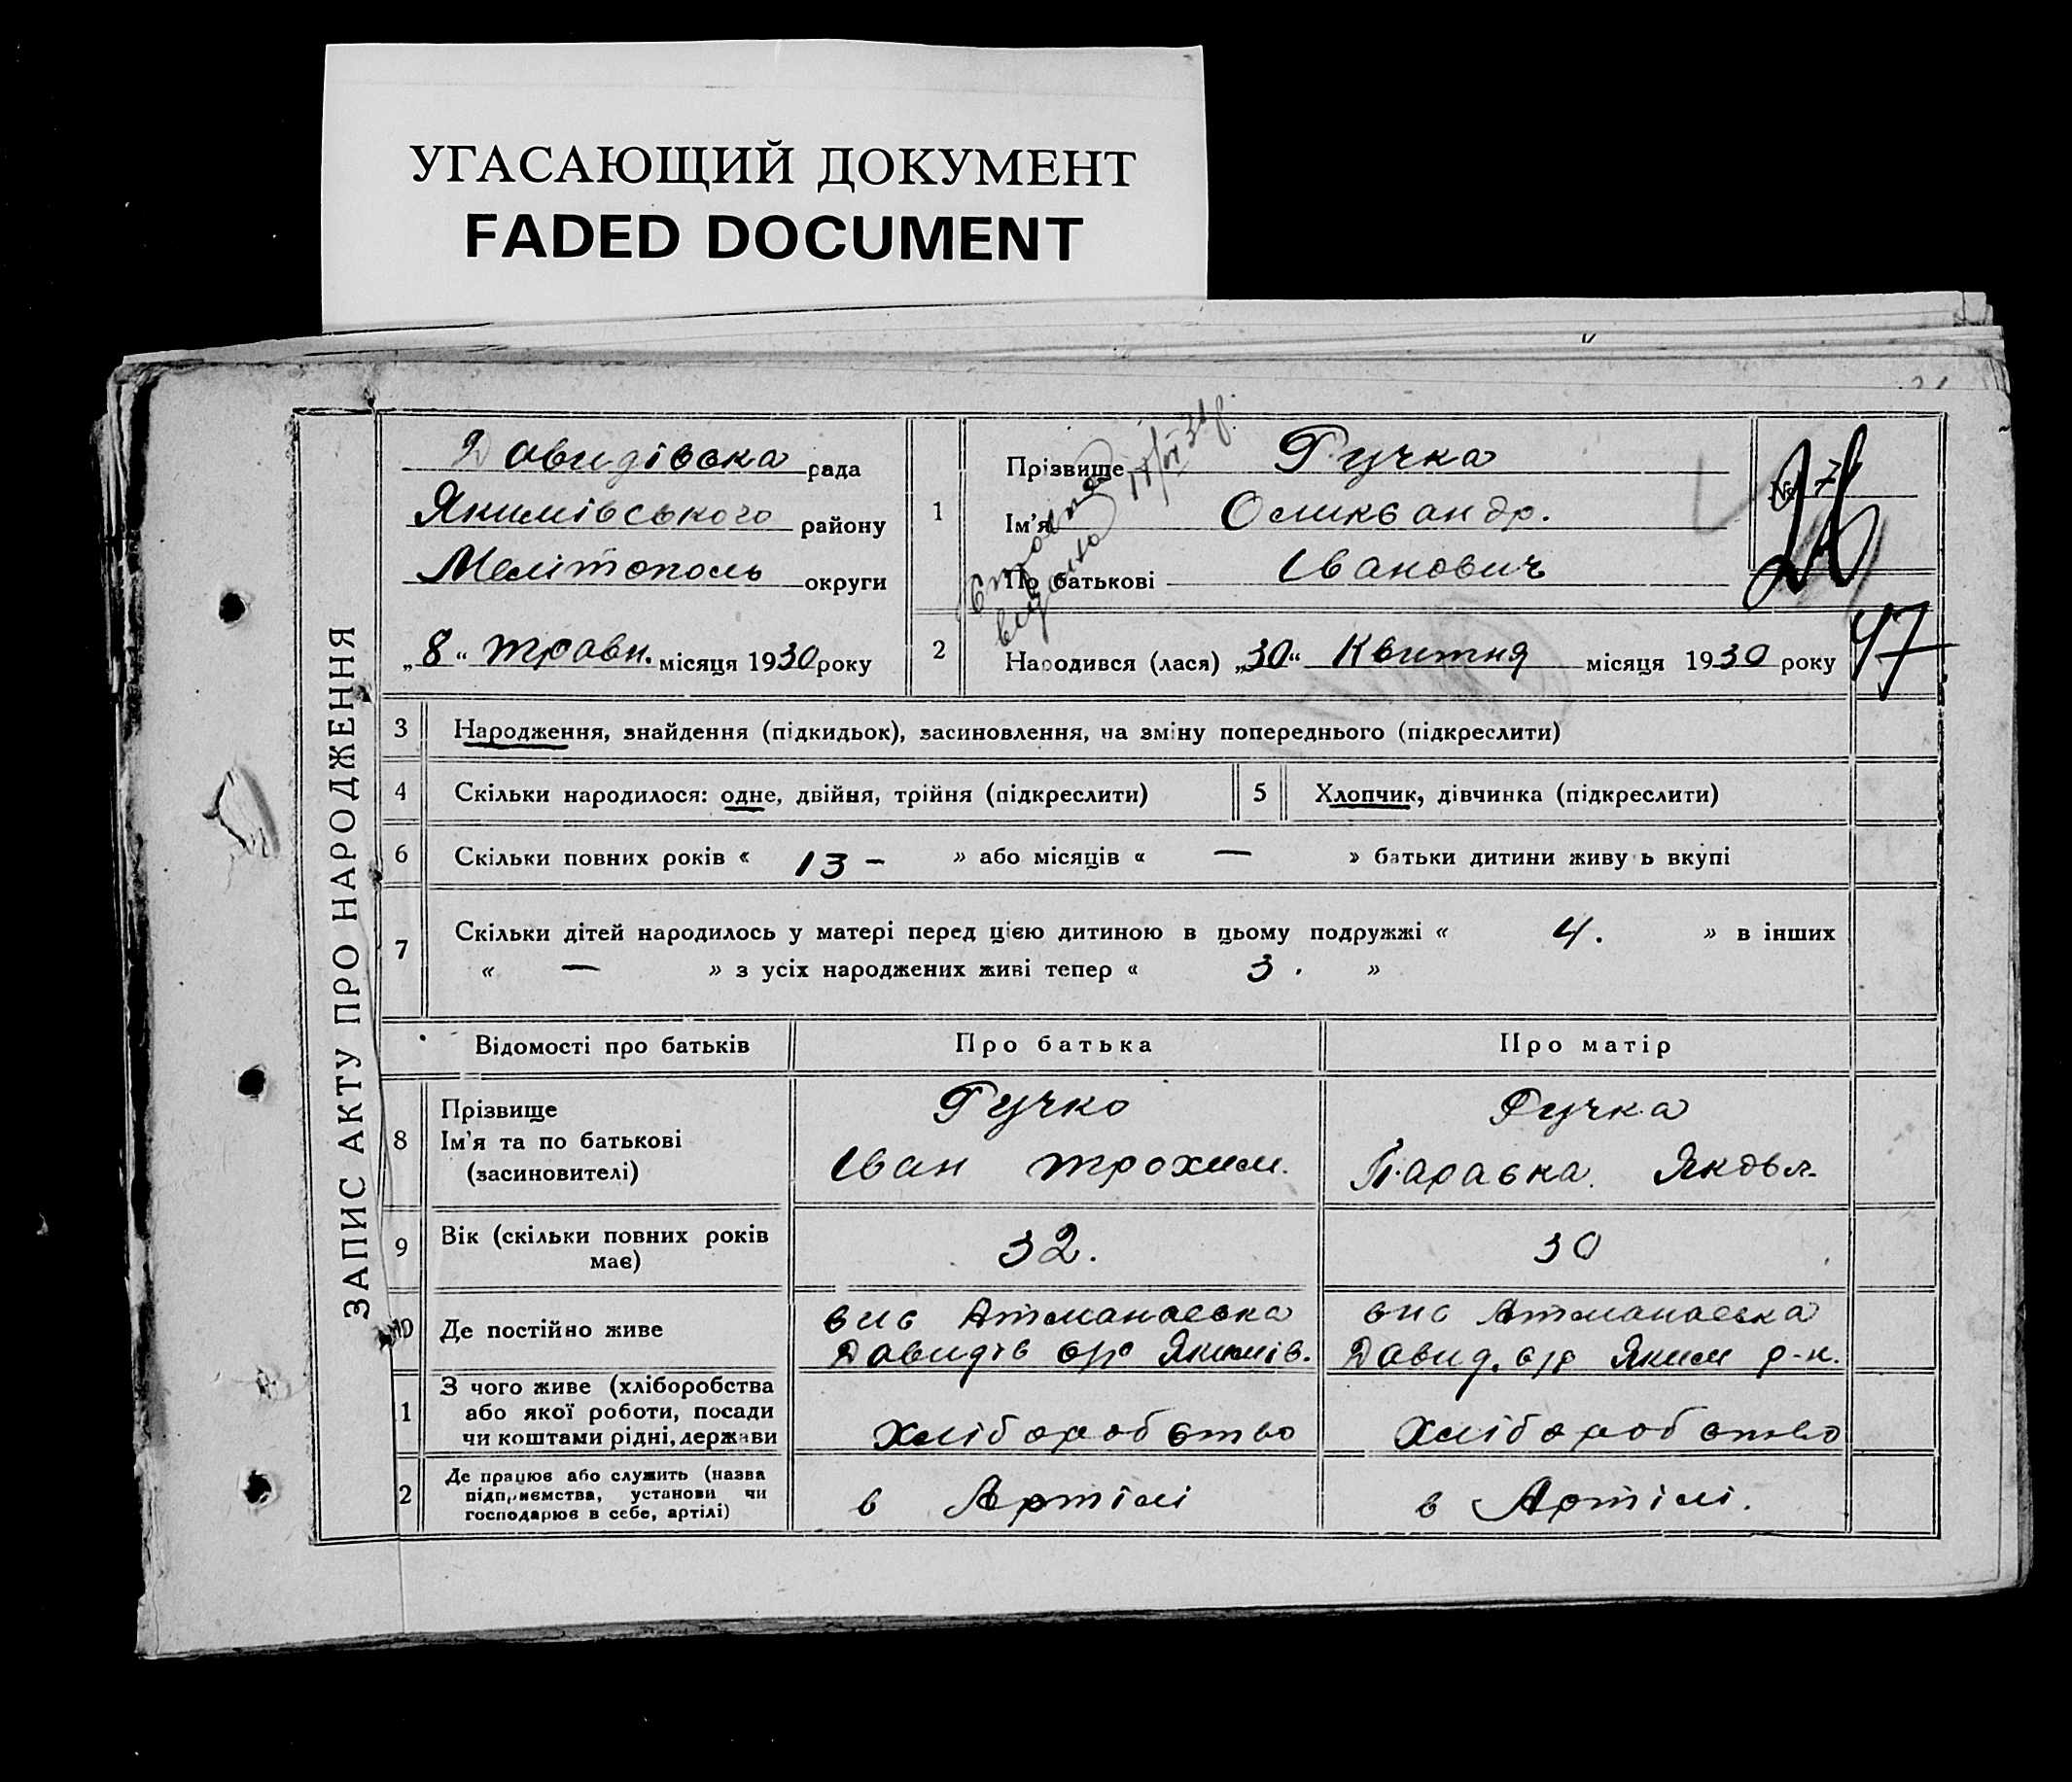 УГАСАЮЩИЙ ДОКУМЕНТ
FADED DOCUMENT
ЗАПИС АКТУ ПРО НАРОДЖЕННЯ
Давидівска рада
Якимівського району
Мелітополь округи
„8“ травн. місяця 1930 року
1
Прізвище Гучка
Ім'я Оликсандр.
По батькові Іванович
№
26
47
2
Народився (лася) „30“ Квитня місяця 1930 року
3 Народження, знайдення (підкидьок), засиновлення, на зміну попереднього (підкреслити)
4 Скільки народилося: одне, двійня, трійня (підкреслити)
5 Хлопчик, дівчинка (підкреслити)
6 Скільки повних років « 13 – » або місяців « — » батьки дитини живуть вкупі
7 Скільки дітей народилось у матері перед цією дитиною в цьому подружжі « 4. » в інших
« — » з усіх народжених живі тепер « 3. »
Відомості про батьків
Про батька
Про матір
8
Прізвище
Ім'я та по батькові
(засиновителі)
Гучко
Іван трохим.
Гучка
Параска. Яковл.
9
Вік (скільки повних років
має)
32.
30
10 Де постійно живе
вис Атманаевка
Давидів с/р Якимів.
вис Атманаевка
Давид. с/р Яким р-н.
1
З чого живе (хліборобства
або якої роботи, посади
чи коштами рідні, держави
хліборобство
хліборобство
2
Де працює або служить (назва
підприємства, установи чи
господарює в себе, артілі)
в Артілі
в Артілі.